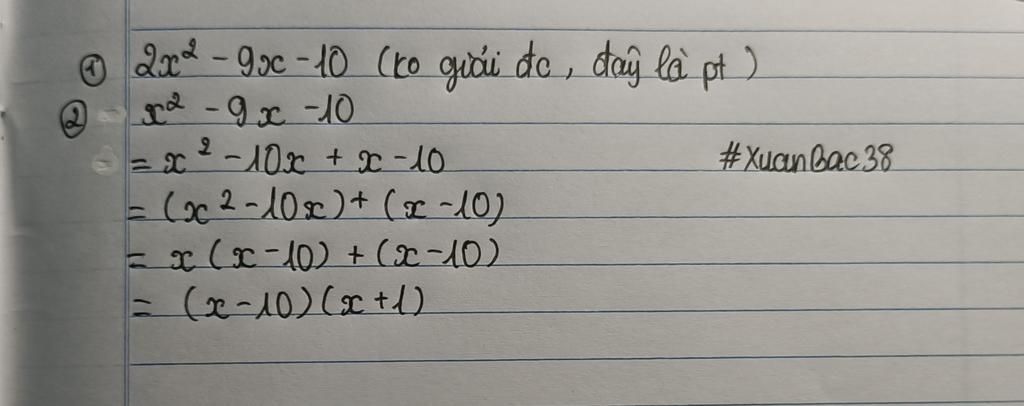 ① 2x² - 9x - 10 (ko giải đc, đây là pt)
② x² - 9x - 10
= x² - 10x + x - 10
#XuanBac38
= (x² - 10x) + (x - 10)
= x(x - 10) + (x - 10)
= (x - 10)(x + 1)